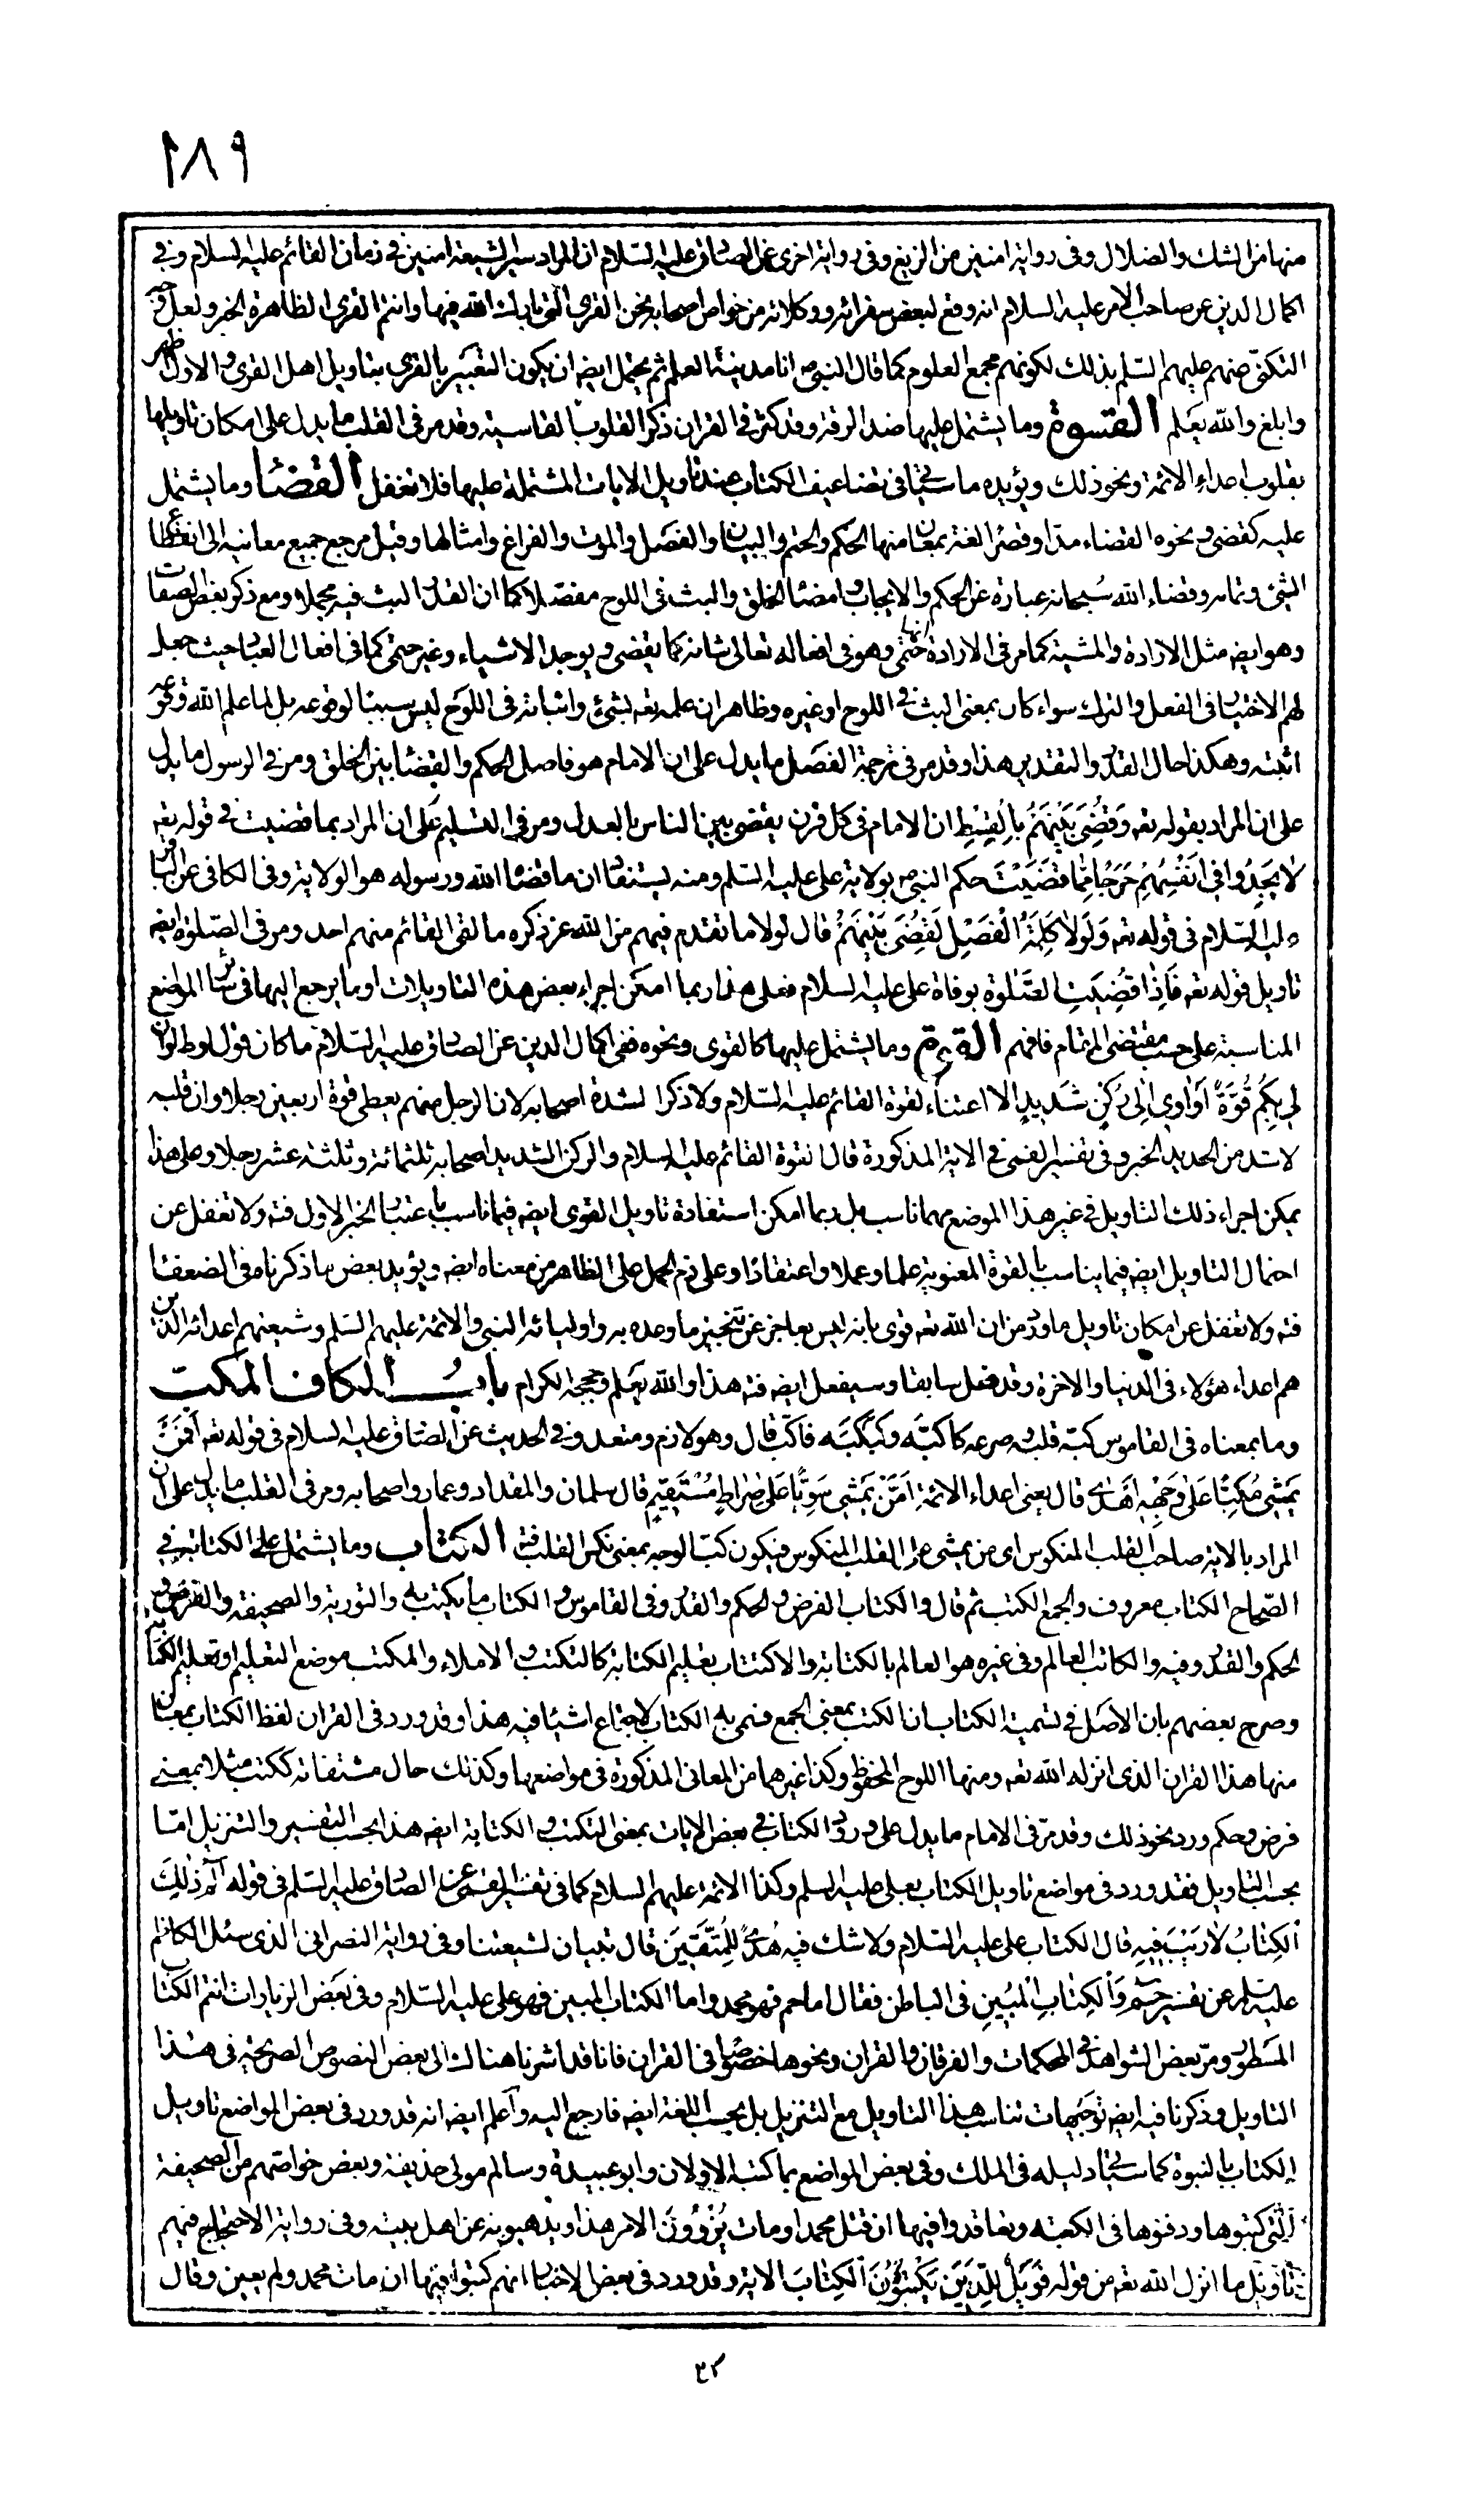 ٢٨٩
منها من الشك والضلال وفى رواية امنين من الزيغ وفى رواية اخرى عن الصادق عليه السلام ان المراد سير الشيعة امنين فى زمان القائم عليه السلام وفى
اكمال الدين عن صاحب الامر عليه السلام انه وقع لبعض سفرائه ووكلائه من خواص اصحابه نحن القرى التى بارك الله فيها وانتم القرى الظاهرة الخبر ولعل
التكنى عنهم عليهم السلم بذلك لكونهم مجمع العلوم كما قال النبى ص انا مدينة العلم ثم يحتمل ايضه ان يكون التعبير بالقرى بتاويل اهل القرى والاول اظهر
وابلغ والله يعلم القسوة وما يشتمل عليها ضد الرقة وقد كثر فى القران ذكر القلوب القاسية وقد مر فى القلب ما يدل على امكان تاويلها
بقلوب اعداء الائمة ونحو ذلك ويؤيده ما سيجئ فى تضاعيف الكتاب عند تاويل الايات المشتملة عليها فلا تغفل القضا وما يشتمل
عليه كقضى ونحوه القضاء مدا وقصرا لغة بمعان منها الحكم والحتم والبيان والفصل والموت والفراغ وامثالها وقيل مرجع جميع معانيه الى انقطاع
الشئ وتمامه وقضاء الله سبحانه عبارة عن الحكم والايجاب وامضا الخلق والبث فى اللوح مفصلا كما ان القدر البث فيه مجملا ومع ذكر بعض الصفات
وهو ايضه مثل الارادة والمشية كما مر فى الارادة حتمى وهو فى افعاله تعالى شانه كما يقضى ويوجد الاشياء وغير حتمى كما فى افعال العباد حيث جعل
لهم الاختيار فى الفعل والترك سواء كان بمعنى البث فى اللوح او غيره وظاهر ان علمه تعه بشئ واثباته فى اللوح ليس سببا لوقوعه بل لما علم الله وقوعه
اثبته وهكذا حال القدر والتقدير هذا وقد مر فى ترجمة الفصل ما يدل على ان الامام هو فاصل الحكم والقضا بين الخلق ومر فى الرسول ما يدل
على ان المراد بقوله تعه وَقُضِىَ بَيْنَهُمْ بِالْقِسْطِ ان الامام فى كل قرن يقضى بين الناس بالعدل ومر فى التسليم على ان المراد بما قضيت فى قوله تعه
لا يَجِدُوا فى اَنْفُسِهِمْ حَرَجًا مِمّا قَضَيْتَ حكم النبى ص بولاية على عليه السلم ومنه يستفاد ان ما قضا الله ورسوله هو الولاية وفى الكافى عن الباقر
عليه السلام فى قوله تعه وَلَولا كَلِمَةُ الْفَصْلِ لَقُضِىَ بَيْنَهُمْ قال لولا ما تقدم فيهم من الله عز ذكره ما لقى القائم منهم احد ومر فى الصلوة ايضه
تاويل قوله تعه فَاِذا قُضِيَتِ الصَّلوة بوفاة على عليه السلام فعلى هذا ربما امكن اجراء بعض هذه التاويلات او ما يرجع اليها فى سائر المواضع
المناسبة على حسب مقتضى المقام فافهم القوة وما يشتمل عليها كالقوى ونحوه ففى اكمال الدين عن الصادق عليه السلام ما كان قول لوط لو ان
لى بِكُمْ قُوَّةً اَوْ اوى اِلى رُكْنٍ شَديدٍ الا اعتناء لقوة القائم عليه السلام ولا ذكرا لشدة اصحابه لان الرجل منهم يعطى قوة اربعين رجلا وان قلبه
لاشد من الحديد الخبر وفى تفسير القمى فى الاية المذكورة قال القوة القائم عليه السلام والركن الشديد اصحابه ثلثمائة وثلثة عشر رجلا وعلى هذا
يمكن اجراء ذلك التاويل فى غير هذا الموضع مهما ناسب بل ربما امكن استفادة تاويل القوى ايضه فيما ناسب باعتبار الخبر الاول فته ولا تغفل عن
احتمال التاويل ايضه فيما يناسب بالقوة المعنوية علما وعملا واعتقادا وعلى الحمل على الظاهر من معناه ايضه ويؤيد بعض ما ذكرناه فى الضعفا
فته ولا تغفل عن امكان تاويل ما ورد من ان الله تعه قوى بانه ليس بعاجز عن تنجيز ما وعده به واوليائه النبى والائمة عليهم السلم وشيعتهم اعدائه الذين
هم اعداء هؤلاء فى الدنيا والاخرة وقد فعل سابقا وسيفعل ايضه فته هذا والله يعلم وحججه الكرام باب الكاف المكب
وما بمعناه فى القاموس كبّه قلبه وصرعه كاكبّه وكَبْكَبَه فاكبّ قال وهو لازم ومتعد وفى الحديث عن الصادق عليه السلام فى قوله تعه اَفَمَنْ
يَمْشى مُكِبًّا عَلى وَجْهِه اَهْدى قال يعنى اعداء الائمة اَمَّنْ يَمْشى سَوِيًّا عَلى صِراطٍ مُسْتَقيمٍ قال سلمان والمقداد وعمار واصحابه ومر فى القلب ما يدل على ان
المراد بالاية صاحب القلب المنكوس اى من يمشى على القلب المنكوس فيكون كب الوجه بمعنى نكس القلب فته الكتاب وما يشتمل على الكتابة فى
الصّحاح الكتاب معروف والجمع الكتب ثم قال والكتاب الفرض والحكم والقدر وفى القاموس الكتاب ما يكتب به والتورية والصحيفة والفرض و
الحكم والقدر وفيه والكاتب العالم وفى غيره هو العالم بالكتابة والاكتتاب تعليم الكتابة كالتكتب والاملاء والمكتب موضع التعليم وتعليم الكتابة
وصرح بعضهم بان الاصل فى تسمية الكتاب ان الكتب بمعنى الجمع فسمى به الكتاب لاجتماع اشيا فيه هذا وقد ورد فى القران لفظ الكتاب بمعان
منها هذا القران الذى انزله الله تعه ومنها اللوح المحفوظ وكذا غيرهما من المعانى المذكورة فى مواضعها وكذلك حال مشتقاته ككتب مثلا بمعنى
فرض وحكم ورد ونحو ذلك وقد مر فى الامام ما يدل على ورود الكتاب فى بعض الايات بمعنى التكتب والكتابة ايضه هذا بحسب التفسير والتنزيل امّا
بحسب التاويل فقد ورد فى مواضع تاويل الكتاب بعلى عليه السلم وكذا الائمة عليهم السلام كما فى تفسير القمى عن الصادق عليه السلم فى قوله الم ذٰلِكَ
الْكِتابُ لا رَيْبَ فيهِ قال الكتاب على عليه السلام ولا شك فيه هُدًى لِلْمُتَّقينَ قال تبيان لشيعتنا وفى رواية النصرانى الذى سئل الكاظم
عليه السلم عن تفسير حم وَالْكِتابِ الْمُبينِ فى الباطن فقال اما حم فهو محمد واما الكتاب المبين فهو على عليه السلام وفى بعض الزيارات انتم الكتاب
المسطور ومرّ بعض الشواهد فى المحكمات والفرقان والقران ونحوها خصوصا فى القران فانا قد اشرنا هناك الى بعض النصوص الصريحة فى هذا
التاويل وذكرنا فيه ايضه توجيهات تناسب هذا التاويل مع التنزيل بل بحسب اللغة ايضه فارجع اليه واعلم ايضه انه قد ورد فى بعض المواضع تاويل
الكتاب بالنبوة كما سيجئ دليله فى الملك وفى بعض المواضع بما كتبه الاولان وابو عبيدة وسالم مولى حذيفة وبعض خواصهم من الصحيفة
التى كتبوها ودفنوها فى الكعبة وتعاقدوا فيها ان قتل محمد او مات يَزْوُونَ الامر هذا ويذهبون به عن اهل بيته وفى رواية الاحتجاج فيهم
تاويل ما انزل الله تعه من قوله فَوَيْلٌ لِلَّذينَ يَكْتُبُونَ الْكِتابَ الاية وقد ورد فى بعض الاخبار انهم كتبوا فيها ان مات محمد ولم يعين وقال